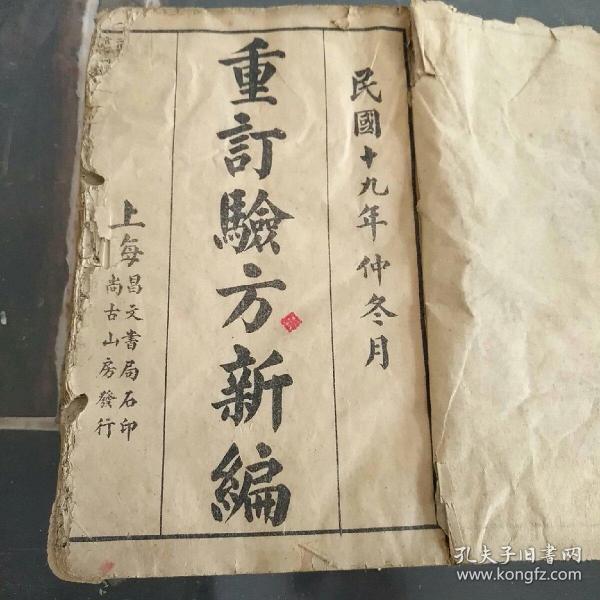 民國十九年仲冬月
重訂驗方新編
上海
昌文書局石印
尚古山房發行
孔夫子旧書网
www.kongfz.com